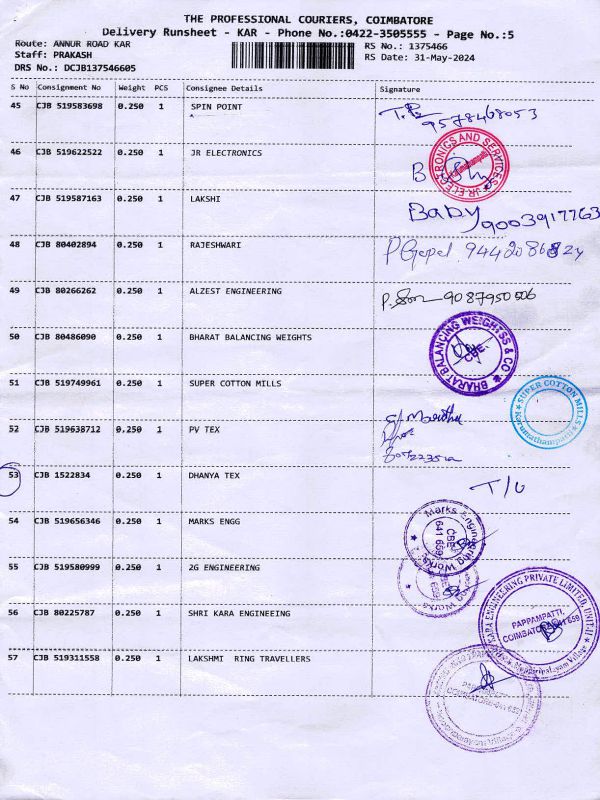 THE PROFESSIONAL COURIERS, COIMBATORE
Delivery Runsheet - KAR - Phone No.:0422-3505555 - Page No.:5
Route: ANNUR ROAD KAR
Staff: PRAKASH
DRS No.: DCJB137546605
RS No.: 1375466
RS Date: 31-May-2024
S No Consignment No Weight PCS Consignee Details Signature
45 CJB 519583698 0.250 1 SPIN POINT
9578468053
46 CJB 519622522 0.250 1 JR ELECTRONICS
JR ELECTRONICS AND SERVICES
47 CJB 519587163 0.250 1 LAKSHI
Baby 9003917763
48 CJB 80402894 0.250 1 RAJESHWARI
P Gopal
49 CJB 80266262 0.250 1 ALZEST ENGINEERING
9087950506
50 CJB 80486090 0.250 1 BHARAT BALANCING WEIGHTS
BHARAT BALANCING WEIGHTSS & CO
CBE.
51 CJB 519749961 0.250 1 SUPER COTTON MILLS
SUPER COTTON MILLS
Karumathampatti
52 CJB 519638712 0.250 1 PV TEX
53 CJB 1522834 0.250 1 DHANYA TEX
T/U
54 CJB 519656346 0.250 1 MARKS ENGG
Marks Engineering Works
CBE
641 659
55 CJB 519580999 0.250 1 2G ENGINEERING
56 CJB 80225787 0.250 1 SHRI KARA ENGINEEING
KARA ENGINEERING PRIVATE LIMITED, UNIT-II
PAPPAMPATTI,
COIMBATORE-641 659
57 CJB 519311558 0.250 1 LAKSHMI RING TRAVELLERS